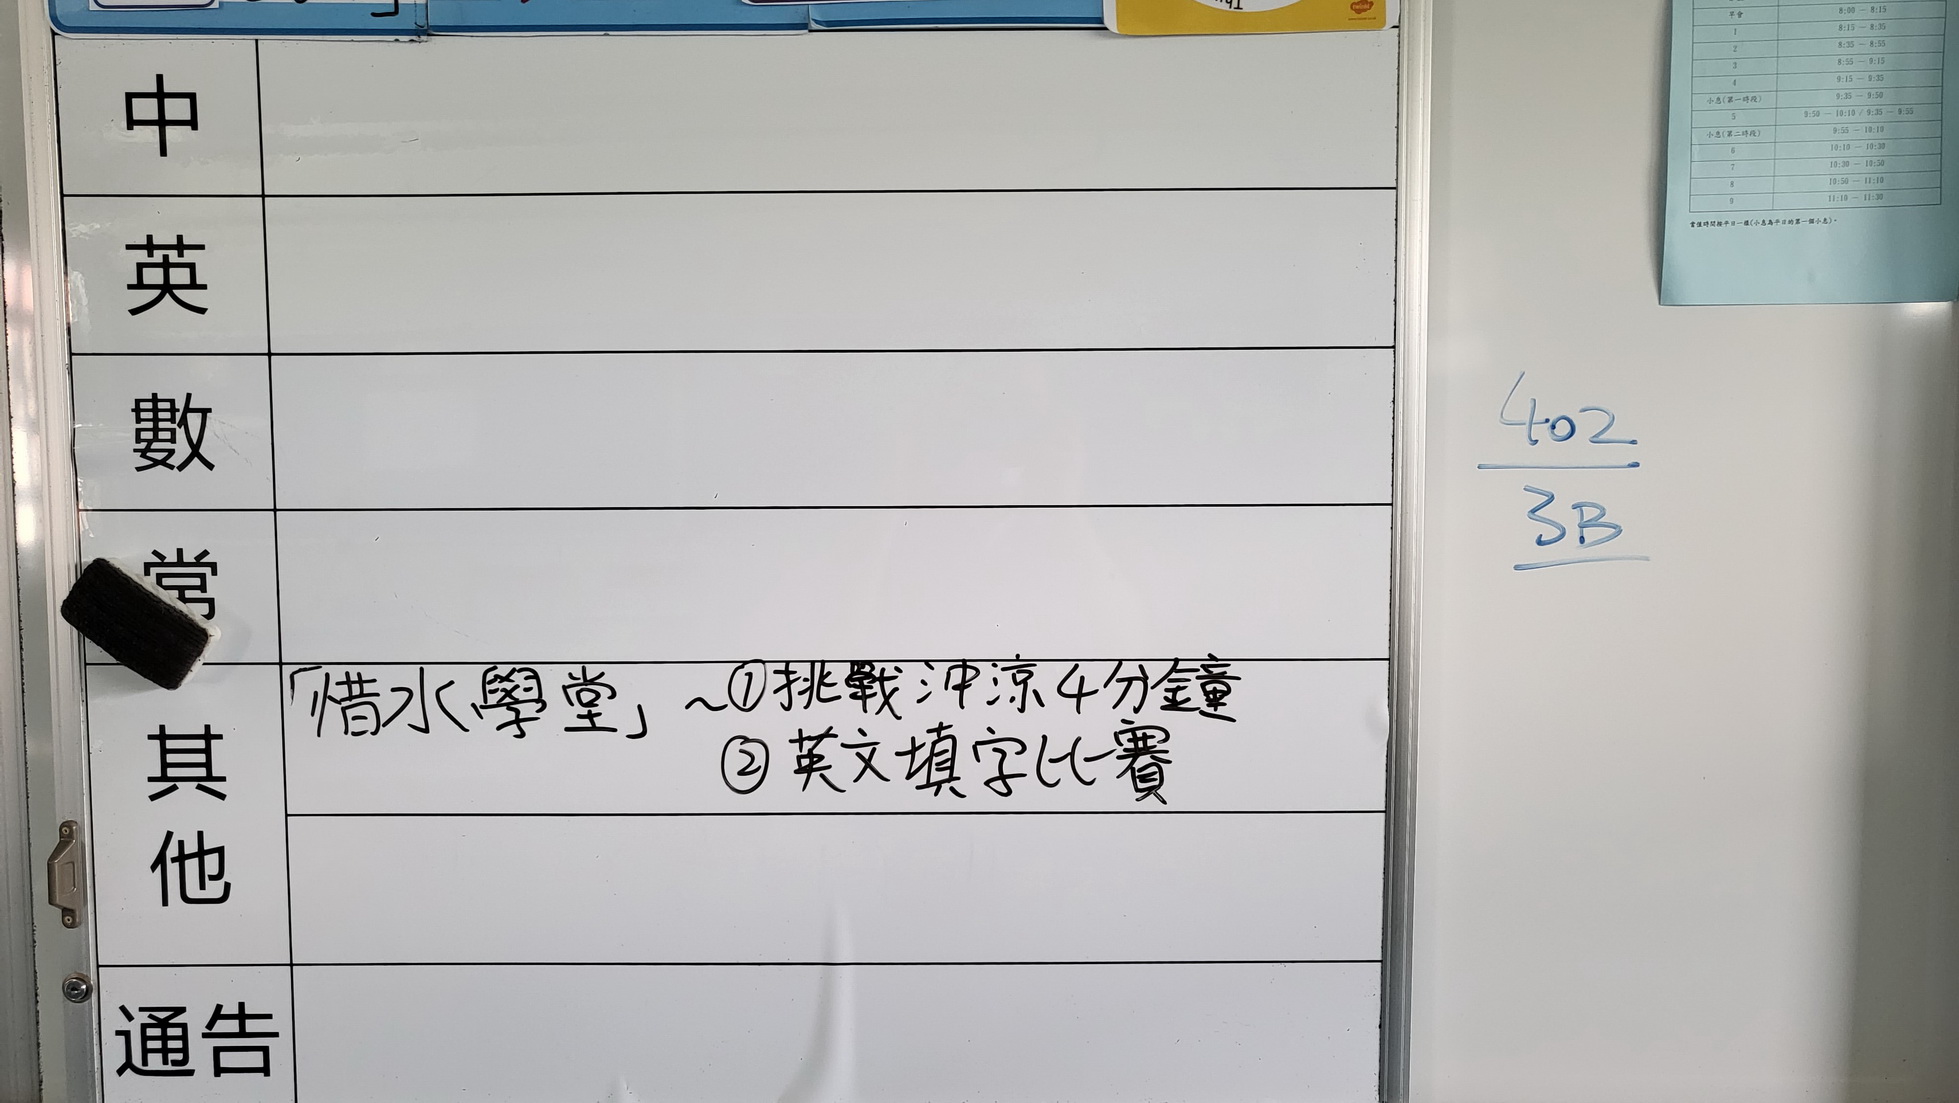 中
英
數
常
其他
「惜水學堂」~①挑戰沖涼4分鐘
②英文填字比賽
通告
402
3B
早會 8:00 — 8:15
1 8:15 — 8:35
2 8:35 — 8:55
3 8:55 — 9:15
4 9:15 — 9:35
小息(第一時段) 9:35 — 9:50
5 9:50 — 10:10 / 9:35 — 9:55
小息(第二時段) 9:55 — 10:10
6 10:10 — 10:30
7 10:30 — 10:50
8 10:50 — 11:10
9 11:10 — 11:30
當值時間按平日一樣(小息為平日的第一個小息)。